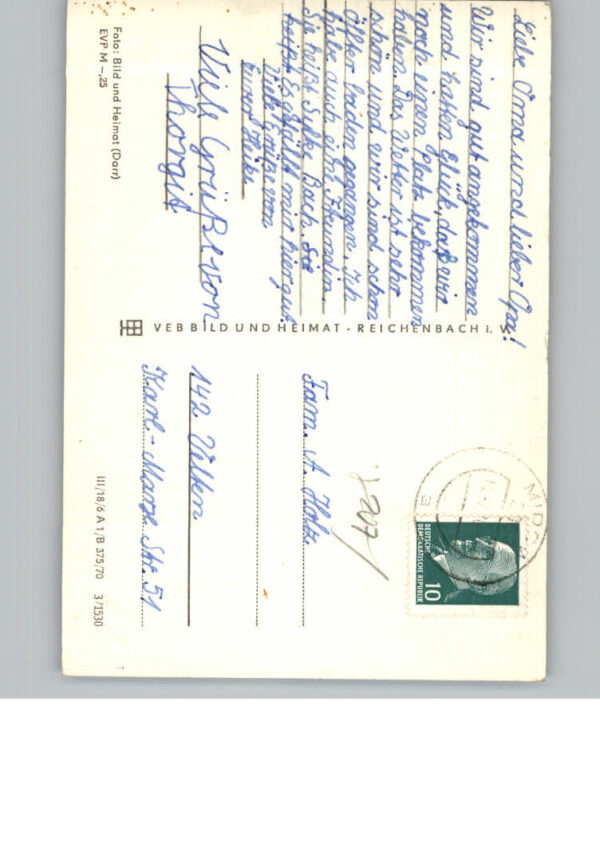 Liebe Oma und lieber Opa!
Wir sind gut angekommen
und hatten Glück, daß wir
noch einen Platz bekommen
haben. Das Wetter ist sehr
schön und wir sind schon
öfter baden gegangen. Ich
habe auch eine Freundin.
Sie heißt Silke Bach. Sie
heißt Es gefällt mir hier gut.
Viele Grüße von
Eurer Heike
Viele Grüße von
Thorgit
Foto: Bild und Heimat (Darr)
EVP M –,25
VEB BILD UND HEIMAT · REICHENBACH i. V.
DEUTSCHE
DEMOKRATISCHE REPUBLIK
10
Fam. A. Holtz
142 Velten
Karl-Marx Str. 51
III/18/6 A 1/B 375/70 3/1530